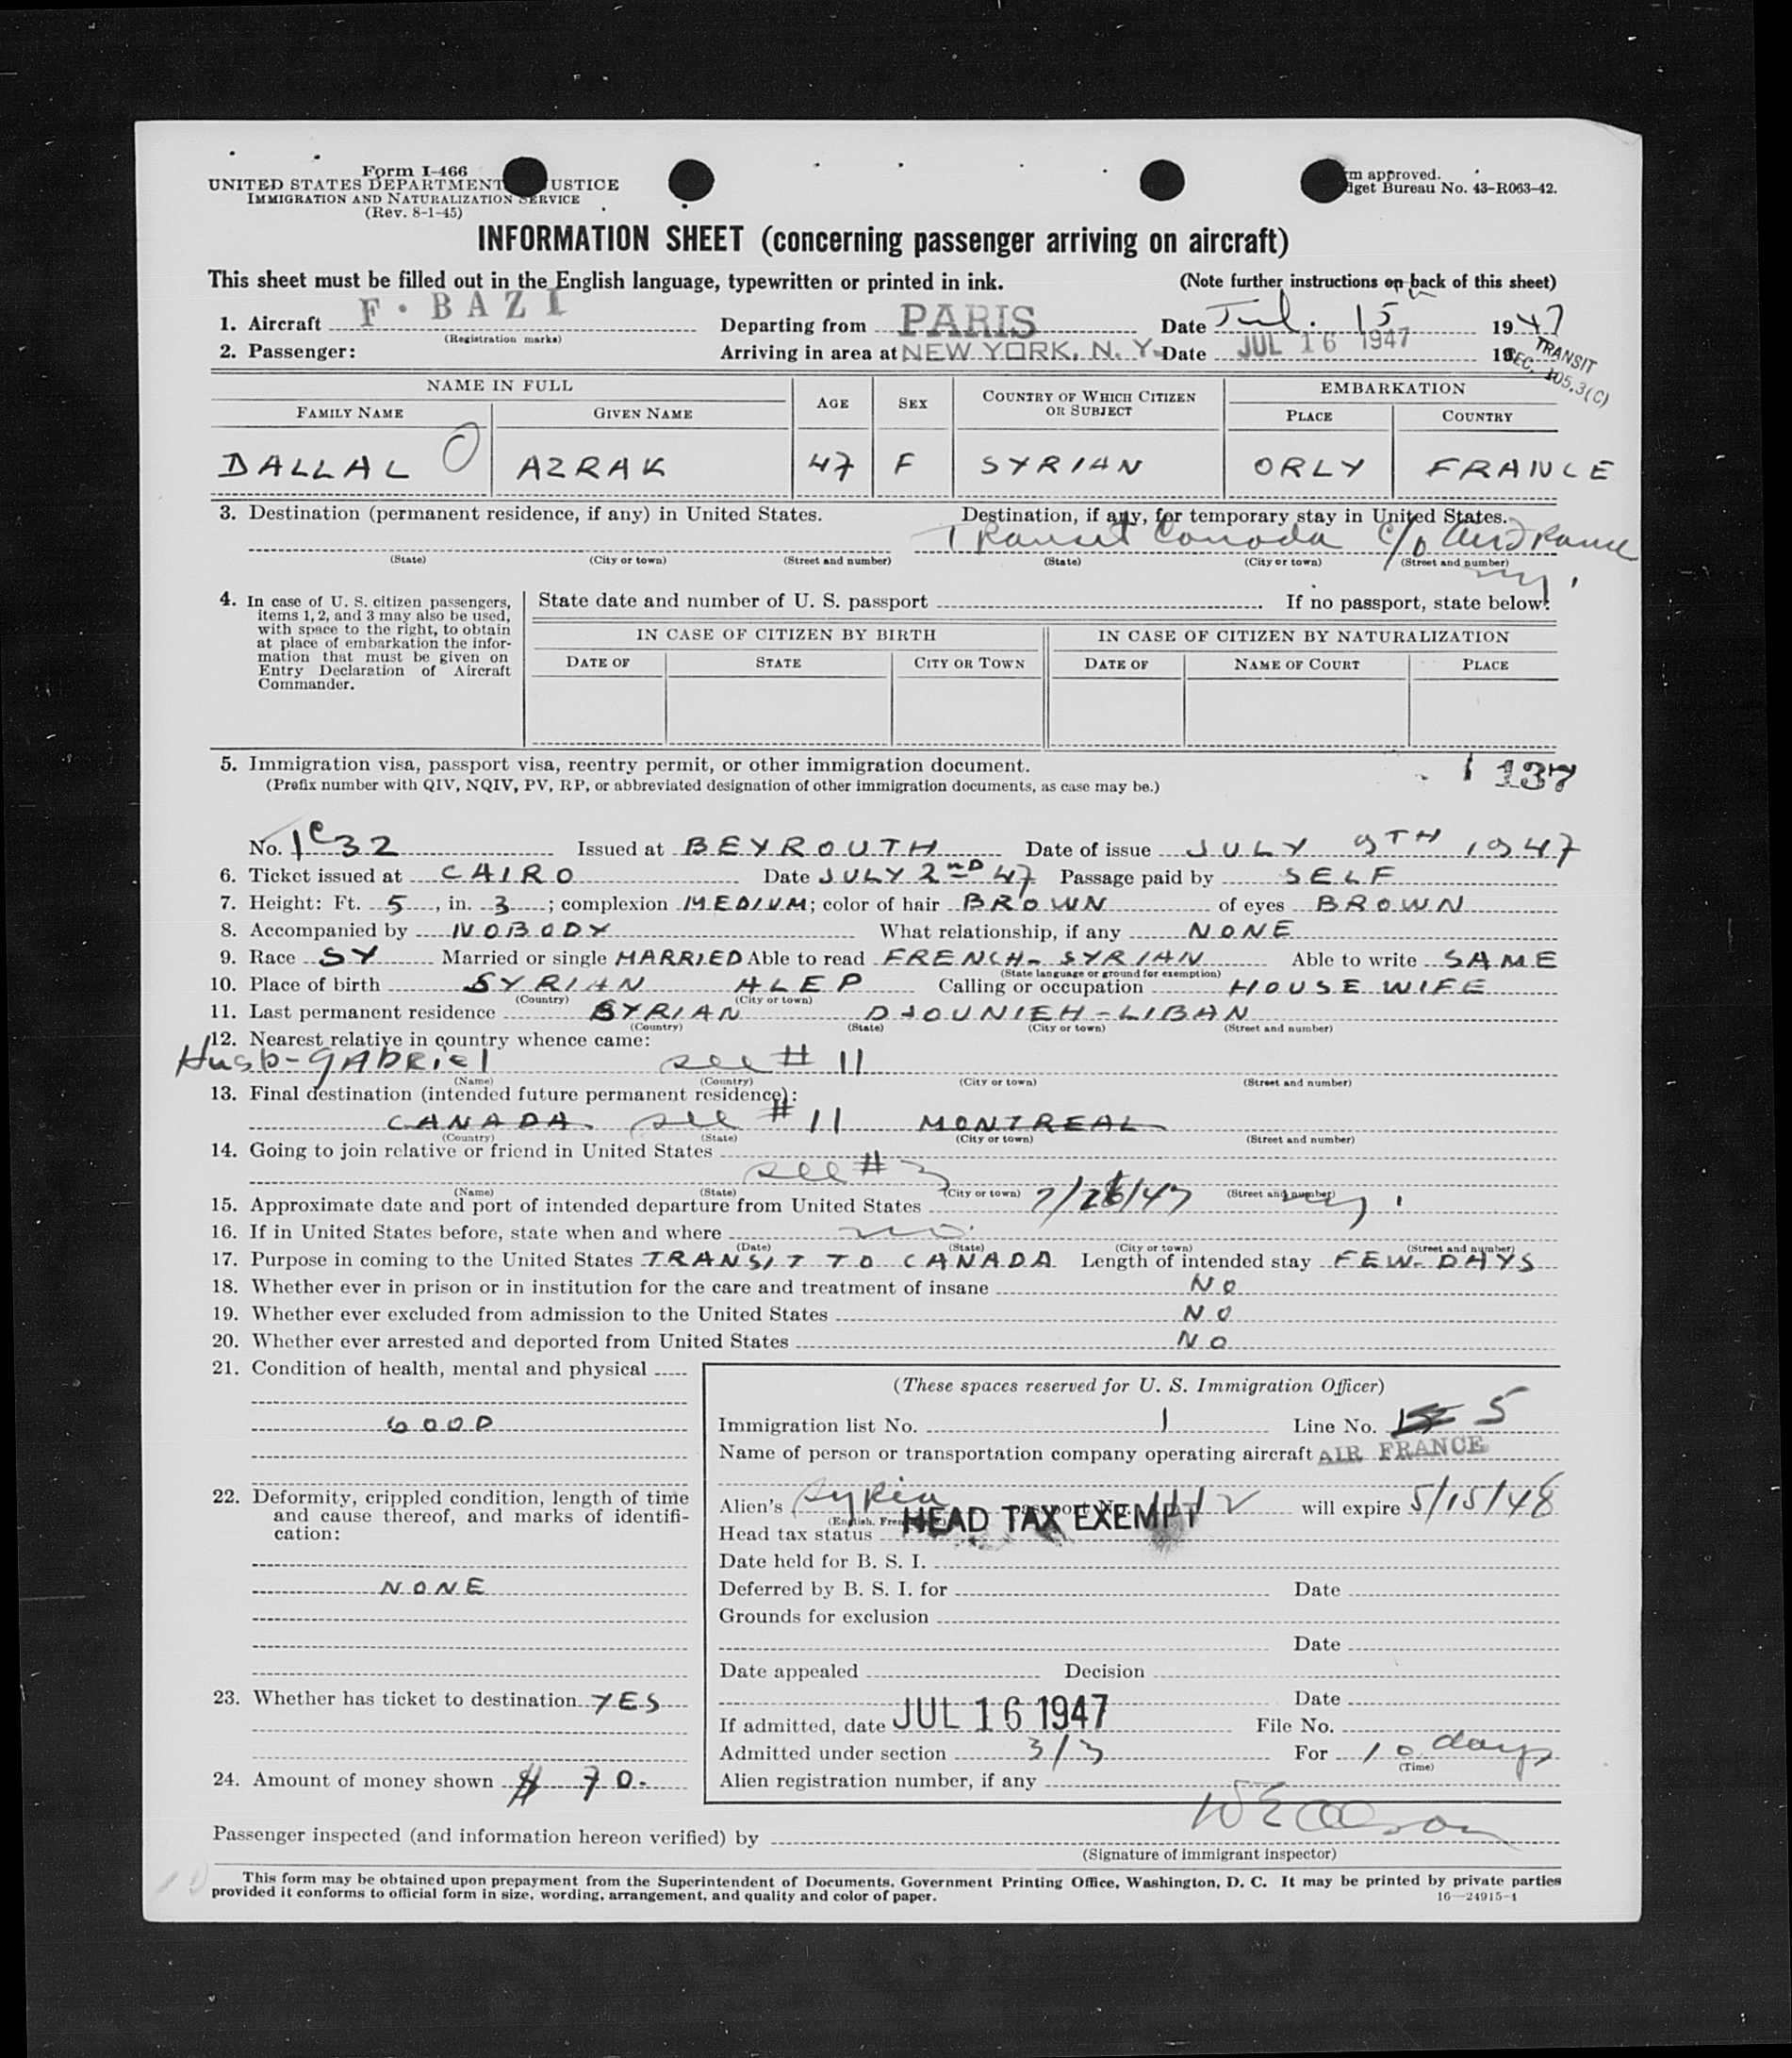 Form I-466
UNITED STATES DEPARTMENT USTICE
IMMIGRATION AND NATURALIZATION SERVICE
(Rev. 8-1-45)
rm approved.
dget Bureau No. 43-R063-42.
INFORMATION SHEET (concerning passenger arriving on aircraft)
This sheet must be filled out in the English language, typewritten or printed in ink. (Note further instructions on back of this sheet)
1. Aircraft F. BAZI Departing from PARIS Date Jul. 15 1947
(Registration marks)
2. Passenger: Arriving in area at NEW YORK, N. Y. Date JUL 16 1947 19
TRANSIT
SEC. 105.3(C)
NAME IN FULL AGE SEX COUNTRY OF WHICH CITIZEN OR SUBJECT EMBARKATION
FAMILY NAME GIVEN NAME PLACE COUNTRY
DALLAL AZRAK 47 F SYRIAN ORLY FRANCE
3. Destination (permanent residence, if any) in United States. Destination, if any, for temporary stay in United States.
Transit Canada c/o Air France
(State) (City or town) (Street and number) (State) (City or town) (Street and number)
ny.
4. In case of U. S. citizen passengers, items 1, 2, and 3 may also be used, with space to the right, to obtain at place of embarkation the information that must be given on Entry Declaration of Aircraft Commander.
State date and number of U. S. passport . If no passport, state below:
IN CASE OF CITIZEN BY BIRTH IN CASE OF CITIZEN BY NATURALIZATION
DATE OF STATE CITY OR TOWN DATE OF NAME OF COURT PLACE
5. Immigration visa, passport visa, reentry permit, or other immigration document.
137
(Prefix number with QIV, NQIV, PV, RP, or abbreviated designation of other immigration documents, as case may be.)
No. 1c32 Issued at BEYROUTH Date of issue JULY 9TH 1947
6. Ticket issued at CAIRO Date JULY 2nd 47 Passage paid by SELF
7. Height: Ft. 5, in. 3; complexion MEDIUM; color of hair BROWN of eyes BROWN
8. Accompanied by NOBODY What relationship, if any NONE
9. Race SY Married or single MARRIED Able to read FRENCH- SYRIAN Able to write SAME
(State language or ground for exemption)
10. Place of birth SYRIAN ALEP Calling or occupation HOUSE WIFE
(Country) (City or town)
11. Last permanent residence SYRIAN DJOUNIEH-LIBAN
(Country) (State) (City or town) (Street and number)
12. Nearest relative in country whence came:
Husb-GAbRiel see # 11
(Name) (Country) (City or town) (Street and number)
13. Final destination (intended future permanent residence):
CANADA see # 11 MONTREAL
(Country) (State) (City or town) (Street and number)
14. Going to join relative or friend in United States
see # 3
(Name) (State) (City or town) (Street and number)
15. Approximate date and port of intended departure from United States 7/26/47 ny.
16. If in United States before, state when and where no
(Date) (State) (City or town) (Street and number)
17. Purpose in coming to the United States TRANSIT TO CANADA Length of intended stay FEW-DAYS
18. Whether ever in prison or in institution for the care and treatment of insane NO
19. Whether ever excluded from admission to the United States NO
20. Whether ever arrested and deported from United States NO
21. Condition of health, mental and physical
GOOD
22. Deformity, crippled condition, length of time and cause thereof, and marks of identification:
NONE
23. Whether has ticket to destination YES
24. Amount of money shown $ 70.
(These spaces reserved for U. S. Immigration Officer)
Immigration list No. 1 Line No. 5
Name of person or transportation company operating aircraft AIR FRANCE
Alien's Syria passport No. 1112 will expire 5/15/48
Head tax status HEAD TAX EXEMPT
Date held for B. S. I.
Deferred by B. S. I. for Date
Grounds for exclusion
Date
Date appealed Decision
Date
If admitted, date JUL 16 1947 File No.
Admitted under section 3/3 For 10 days
(Time)
Alien registration number, if any
Passenger inspected (and information hereon verified) by
(Signature of immigrant inspector)
This form may be obtained upon prepayment from the Superintendent of Documents, Government Printing Office, Washington, D. C. It may be printed by private parties
provided it conforms to official form in size, wording, arrangement, and quality and color of paper. 16—24915-1